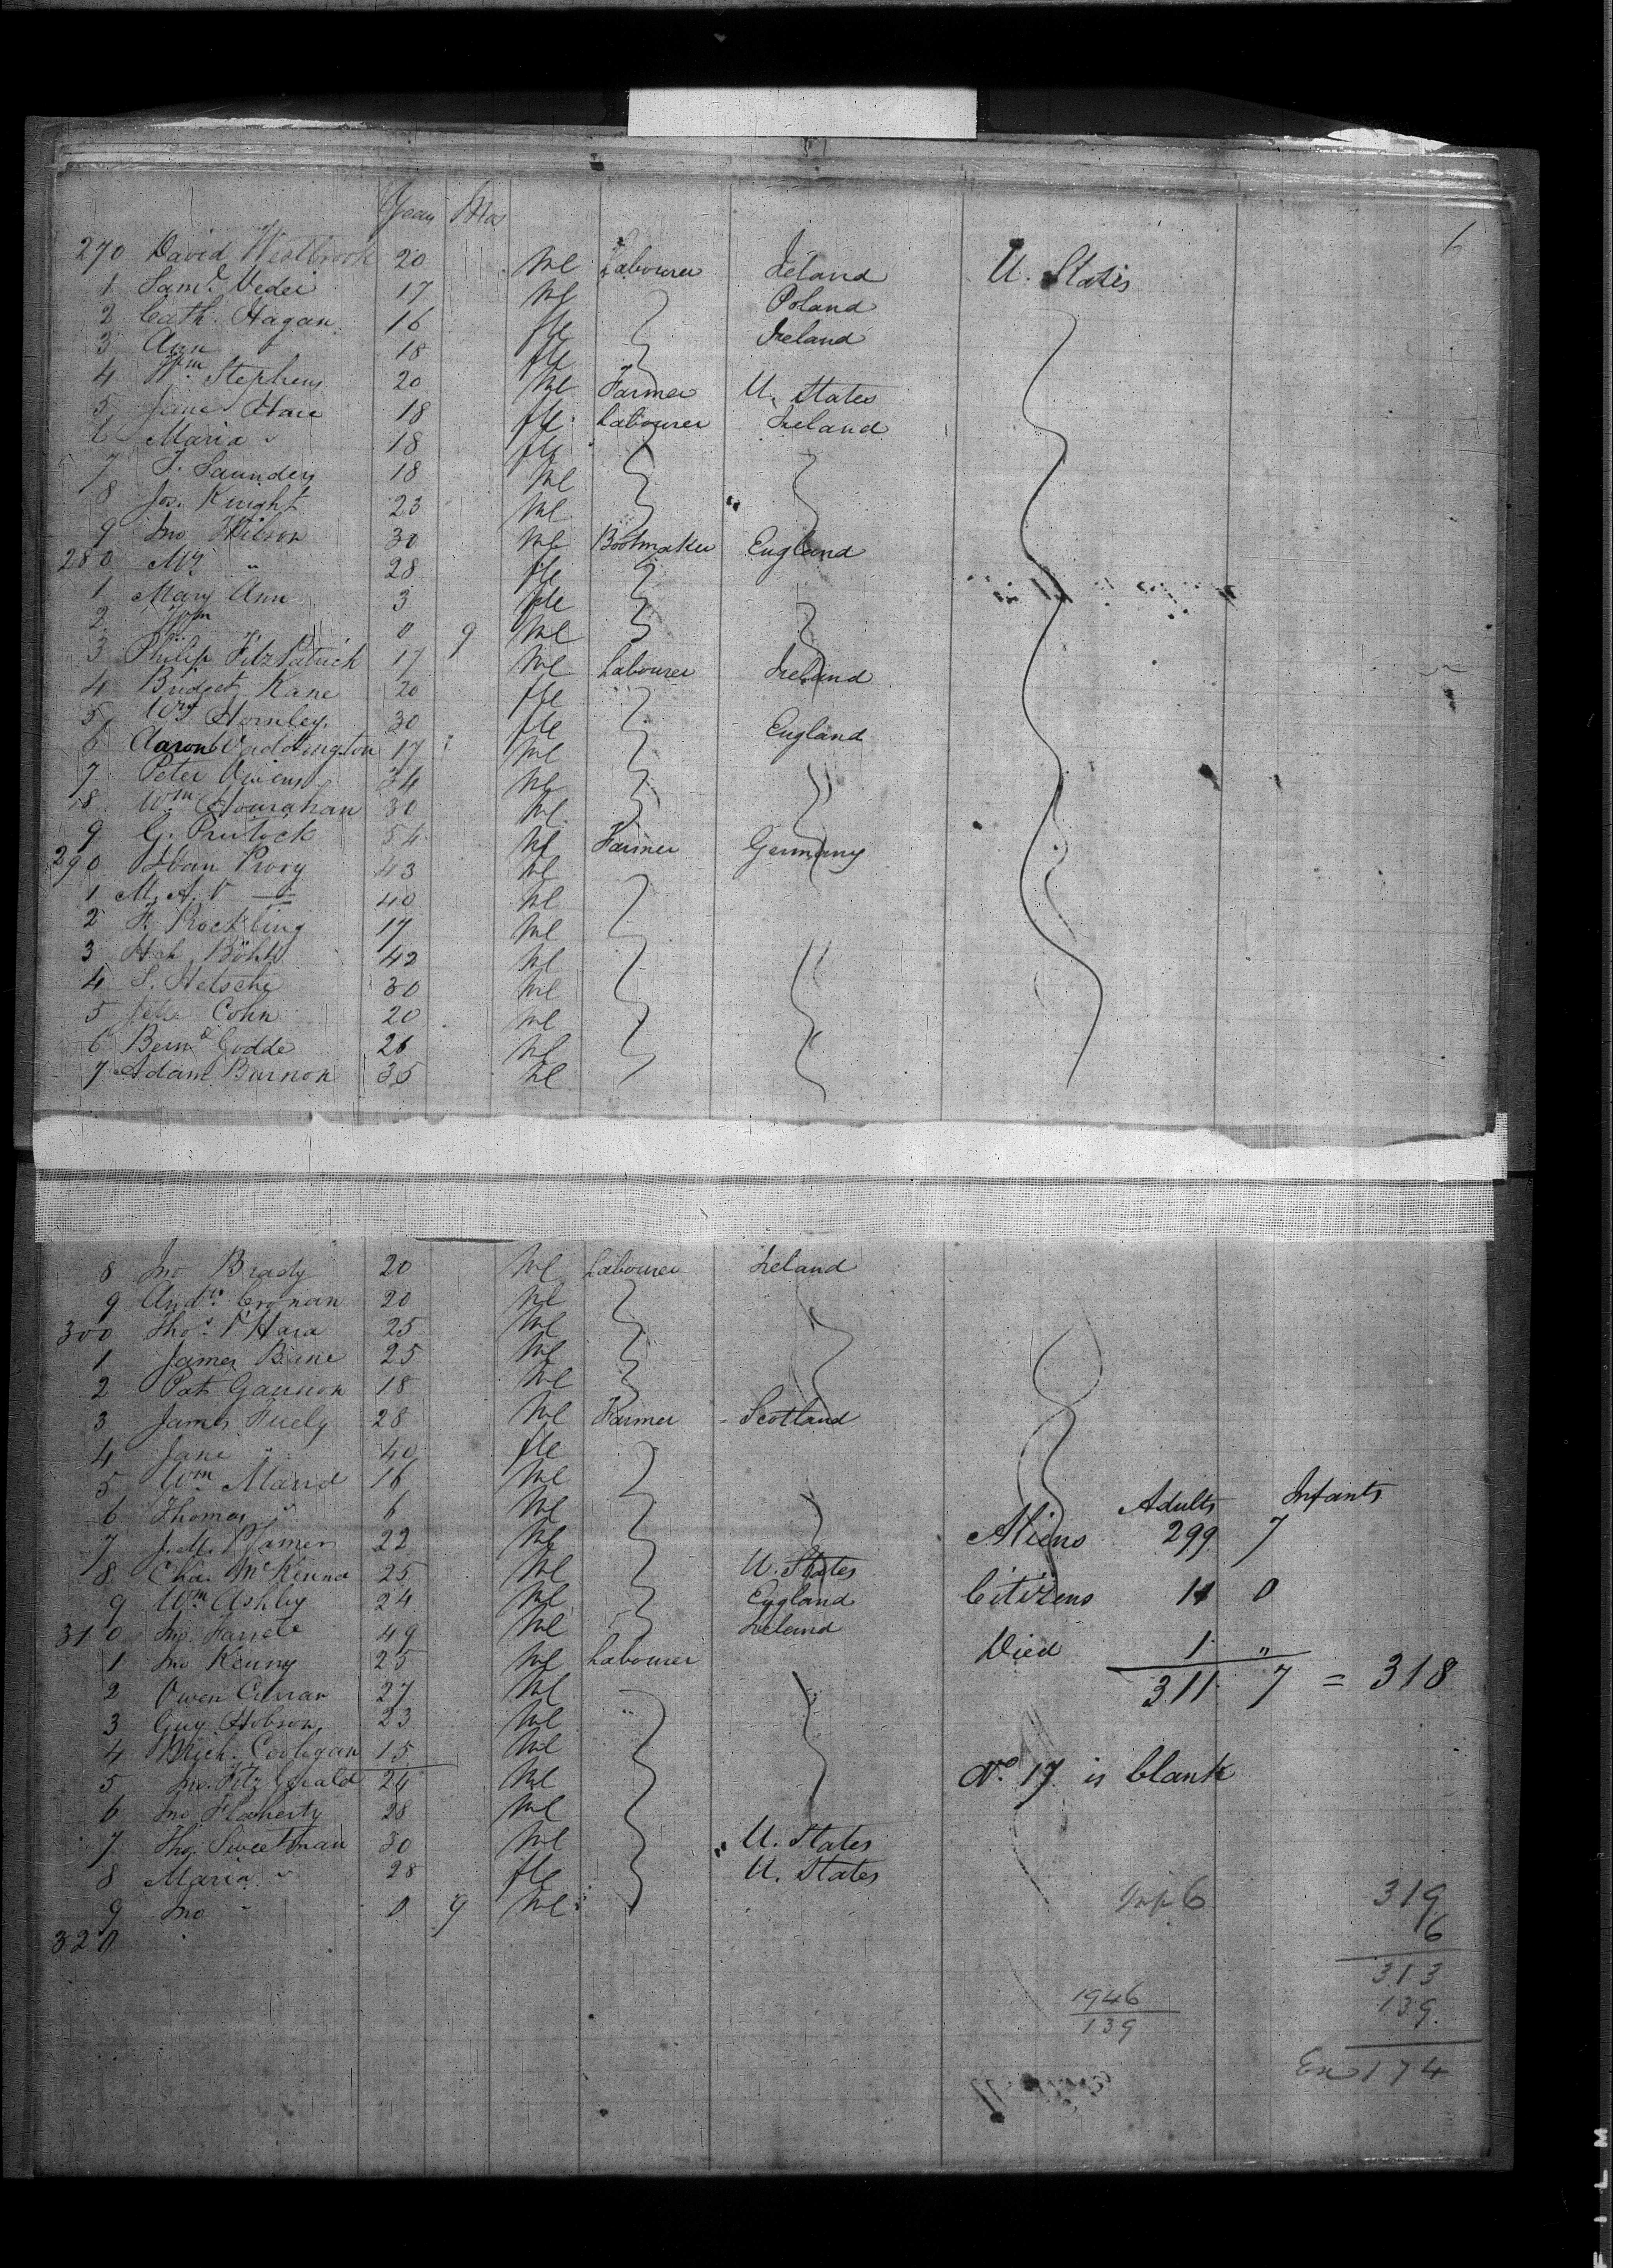 Years Mos
6
270 David Westbrook 20 Ml Labourer Ireland U. States
1 Saml. Vedei 17 Ml Poland
2 Cath. Hagan 16 fle Ireland
3 Ann " 18 fle
4 Wm Stephens 20 Ml Farmer U. States
5 Jane Hare 18 fle Labourer Ireland
6 Maria " 18 fle
7 T. Saunders 18 Ml
8 Jos. Knight 23 Ml
9 Jno Wilson 30 Ml Bootmaker England
280 Mrs " 28 fle
1 Mary Ann 3 fle
2 Wm 0 9 Ml
3 Philip FitzPatrick 17 Ml Labourer Ireland
4 Bridget Kane 20 fle
5 Hornley 30 fle England
6 Aaron Waddington 17 Ml
7 Peter Owens 34 Ml
8 Wm Hourahan 30 Ml
9 G. Prutock 54 Ml Farmer Germany
290 Prory 43 Ml
1 M. A. 40 Ml
2 F. Rockling 17 Ml
3 Hch Böhh 42 Ml
4 S. Hetsche 30 Ml
5 Cohn 20 Ml
6 Bernd Godde 26 Ml
7 Adam Burnon 35 Ml
8 Jno Brady 20 Ml Labourer Ireland
9 Andw. Cronan 20 Ml
300 Thos. O'Hara 25 Ml
1 James Bane 25 Ml
2 Pat Gannon 18 Ml
3 James Fuely 28 Ml Farmer Scotland
4 Jane " 40 fle
5 Wm Marrd 16 Ml
Adults Infants
6 Thomas " 6 Ml
7 J. M. 22 Ml Aliens 299 7
8 Chas. McKenna 25 Ml U. States
9 Wm Ashby 24 Ml England Citizens 11 0
310 Jno. 49 Ml Ireland
1 Jno Kenny 25 Ml Labourer Died 1 "
2 Owen Curran 27 Ml 311 7 = 318
3 Guy Hobson 23 Ml
4 Mich. Cooligan 15 Ml
5 Jno. FitzGerald 24 Ml No. 17 is blank
6 Jno Flaherty 28 Ml
7 Thos. Sweetman 30 Ml U. States
8 Maria " 28 fle U. States
9 Jno " 0 9 Ml
Inf 6 319
320
6
313
1946 139
139
174
FILM